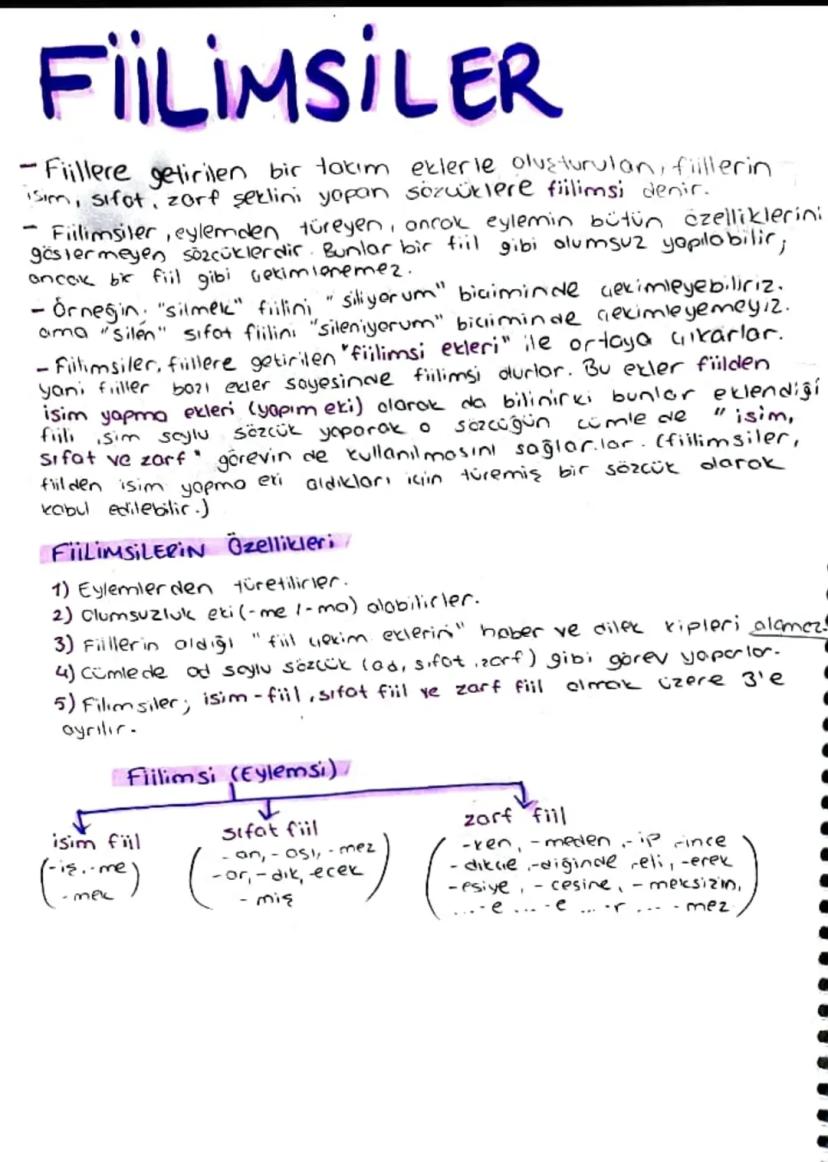 FiiLiMSiLER
- Fiillere getirilen bir takım eklerle oluşturulan, fiillerin
isim, sıfat, zarf şeklini yapan sözcüklere fiilimsi denir.
- Fiilimsiler, eylemden türeyen, ancak eylemin bütün özelliklerini
göstermeyen sözcüklerdir. Bunlar bir fiil gibi olumsuz yapılabilir;
ancak bir fiil gibi çekimlenemez.
- Örneğin. "silmek" fiilini "siliyorum" biçiminde çekimleyebiliriz.
ama "silen" sıfat fiilini "sileniyorum" biçiminde çekimleyemeyiz.
- Fiilimsiler, fiillere getirilen "fiilimsi ekleri" ile ortaya çıkarlar.
yani fiiller bazı ekler sayesinde fiilimsi olurlar. Bu ekler fiilden
isim yapma ekleri (yapım eki) olarak da bilinirki bunlar eklendiği
fiili isim soylu sözcük yaparak o sözcüğün cümle de "isim,
sıfat ve zarf" görevin de kullanılmasını sağlarlar. (fiilimsiler,
fiilden isim yapma eki aldıkları için türemiş bir sözcük olarak
kabul edilebilir.)
FiiLiMSiLERiN Özellikleri
1) Eylemlerden türetilirler.
2) Olumsuzluk eki (-me / -ma) alabilirler.
3) Fiillerin aldığı "fiil çekim eklerini" haber ve dilek kipleri alamaz!
4) Cümlede ad soylu sözcük (ad, sıfat, zarf) gibi görev yaparlar.
5) Filimsiler; isim-fiil, sıfat fiil ve zarf fiil olmak üzere 3'e
ayrılır.
Fiilimsi (Eylemsi)
isim fiil
(-iş, -me)
-mek
sıfat fiil
-an, -ası, -mez
-ar, -dık, -ecek
-miş
zarf fiil
-ken, -meden, -ip -ince
-dikçe, -diğinde -eli, -erek
-esiye, -cesine, -meksizin,
...-e ...-e ...-r ... -mez